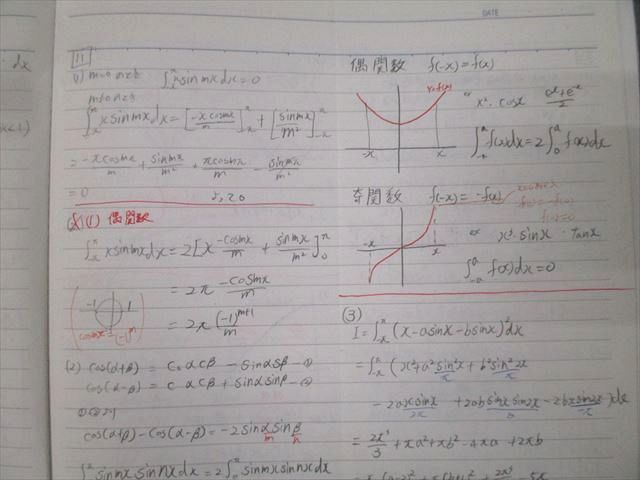 DATE
dx
11
1) m=0のとき ∫_{-π}^{π} x sin mx dx = 0
m≠0のとき
∫_{-π}^{π} x sin mx dx = [-x cos mx / m]_{-π}^{π} + [sin mx / m²]_{-π}^{π}
= 0
(1) 偶関数
∫_{-π}^{π} x sin mx dx = 2[x · -cos mx / m + sin mx / m²]_0^π
= 2π · -cos mπ / m
= 2π (-1)^{m+1} / m
-1 1
cos mπ = (-1)^m
(2) cos(α+β) = cαcβ - sinαsβ -①
cos(α-β) = cαcβ + sinαsinβ -②
①②より
cos(α+β) - cos(α-β) = -2 sinα sinβ
m n
∫ sin mx sin nx dx = 2∫_0 sin mx sin nx dx
偶関数 f(-x) = f(x)
y=f(x)
-x x
ex x² · cos x (e^x + e^{-x}) / 2
∫_{-a}^{a} f(x)dx = 2∫_0^a f(x)dx
奇関数 f(-x) = -f(x)
-x x
ex x³ · sin x · tan x
∫_{-a}^{a} f(x)dx = 0
(3)
I = ∫_{-π}^{π} (x - a sin x - b sin 2x)² dx
= ∫_{-π}^{π} (x² + a² sin² x + b² sin² 2x
- 2ax sin x + 2ab sin x sin 2x - 2bx sin 2x) dx
= 2π³ / 3 + πa² + πb² - 4πa + 2πb